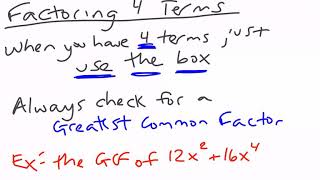 Factoring 4 Terms
When you have 4 terms, just
use the box
Always check for a
Greatest Common Factor
Ex: the GCF of 12x² + 16x⁴